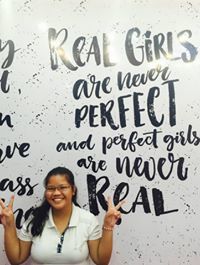 REAL GIRLS
are never
PERFECT
and perfect girls
are never
REAL